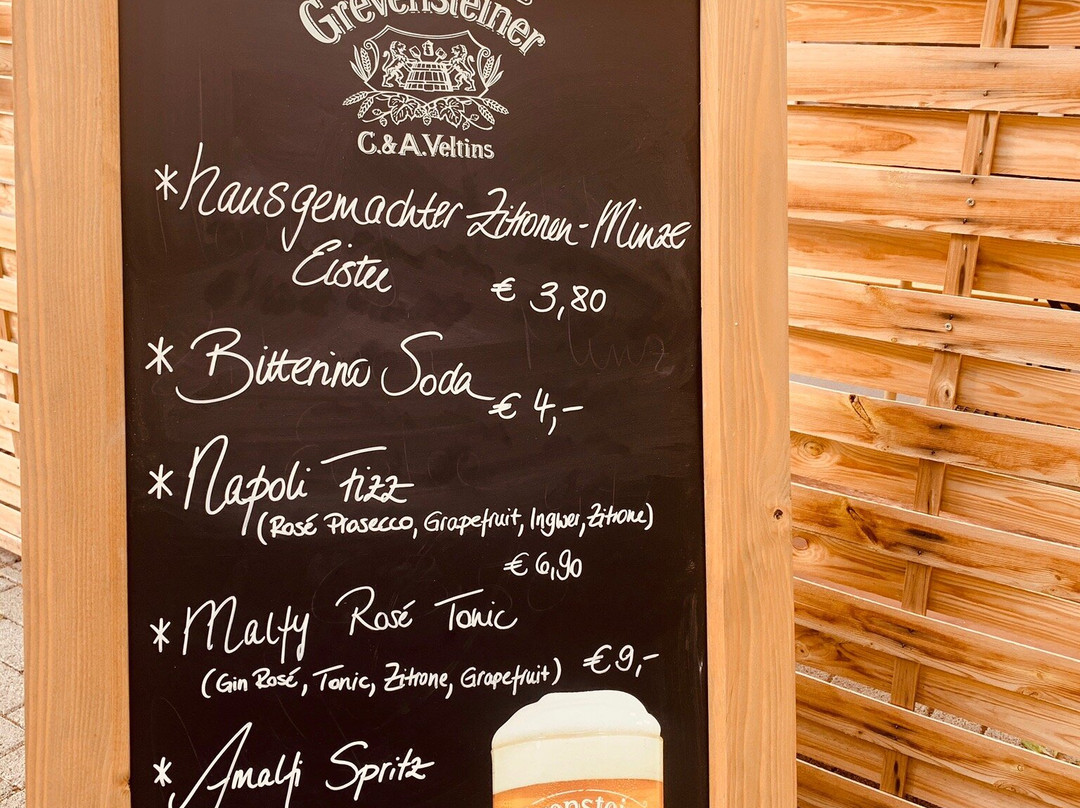 Grevensteiner
C.&A.Veltins
*Hausgemachter Zitronen-Minze
Eistee
€ 3,80
*Bitterino Soda
€ 4,-
*Napoli Fizz
(Rosé Prosecco, Grapefruit, Ingwer, Zitrone)
€ 6,90
*Malfy Rosé Tonic
€ 9,-
(Gin Rosé, Tonic, Zitrone, Grapefruit)
*Amalfi Spritz